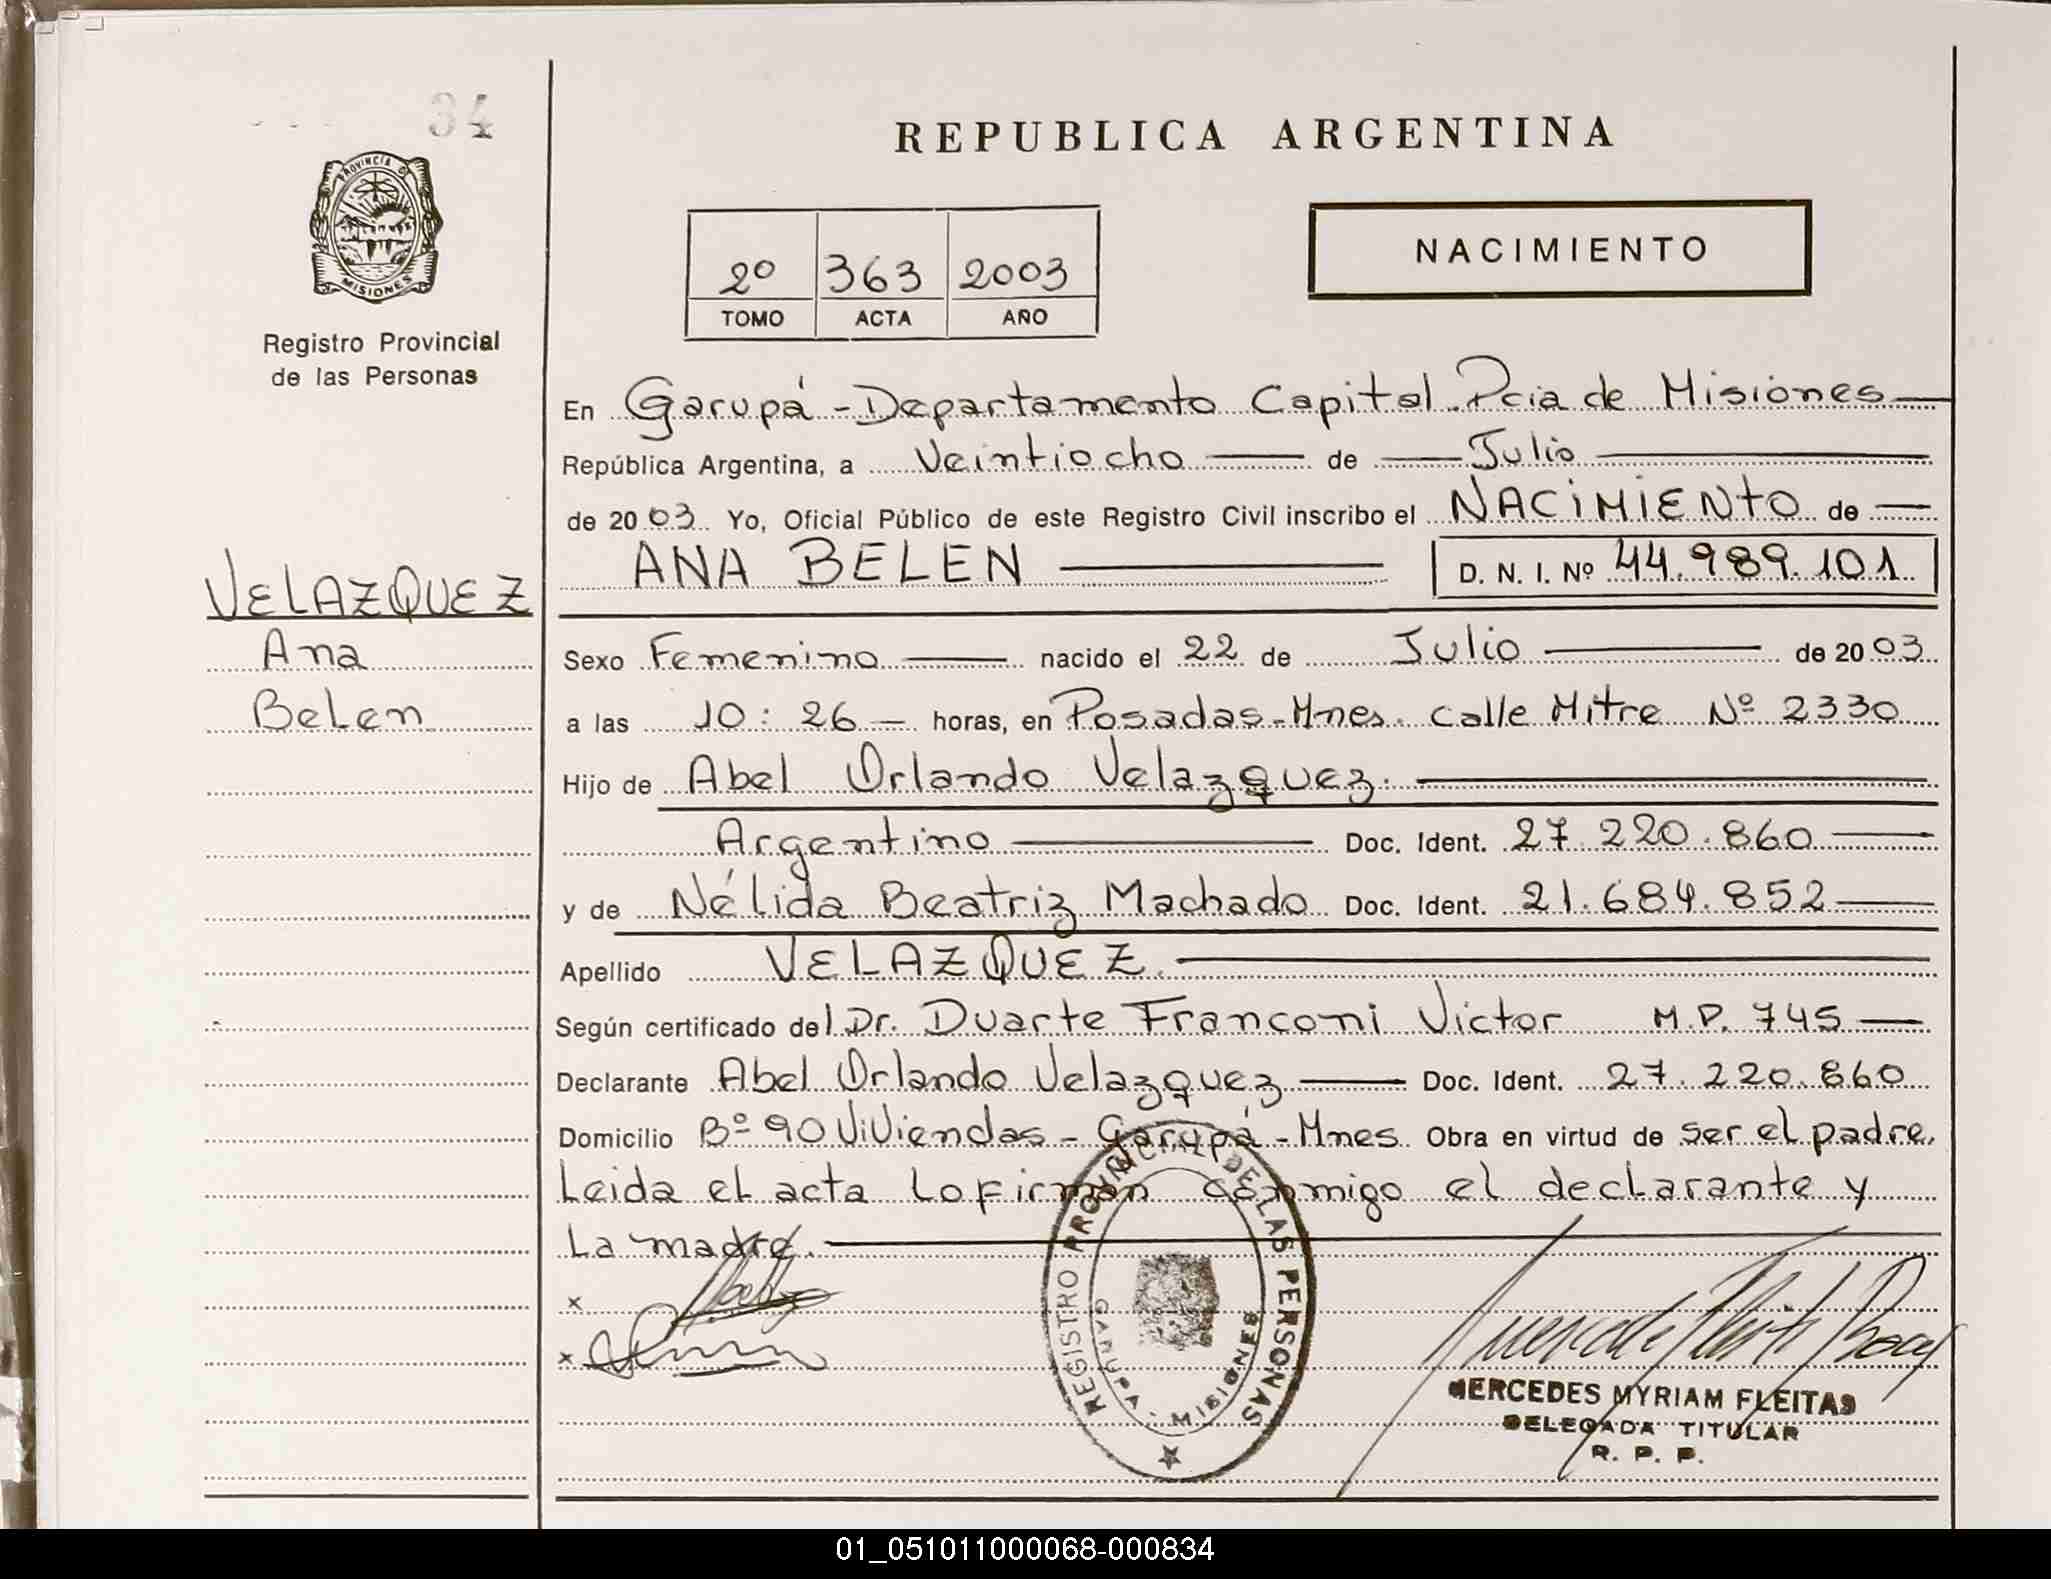 34
PROVINCIA DE
MISIONES
Registro Provincial
de las Personas
VELAZQUEZ
Ana
Belen
REPUBLICA ARGENTINA
2º 363 2003
TOMO ACTA AÑO
NACIMIENTO
En Garupá - Departamento Capital. Pcia de Misiones
República Argentina, a Veintiocho de Julio
de 2003 Yo, Oficial Público de este Registro Civil inscribo el NACIMIENTO de
ANA BELEN D. N. I. Nº 44.989.101
Sexo Femenino nacido el 22 de Julio de 2003
a las 10:26 horas, en Posadas-Mnes. calle Mitre Nº 2330
Hijo de Abel Orlando Velazquez.
Argentino Doc. Ident. 27.220.860
y de Nélida Beatriz Machado Doc. Ident. 21.684.852
Apellido VELAZQUEZ.
Según certificado del Dr. Duarte Franconi Victor M.P. 745
Declarante Abel Orlando Velazquez Doc. Ident. 27.220.860
Domicilio Bº 90 Viviendas - Garupá - Mnes Obra en virtud de ser el padre.
Leida el acta lo firman conmigo el declarante y
La madre.
x
x
REGISTRO PROVINCIAL DE LAS PERSONAS
GARUPA - MISIONES
MERCEDES MYRIAM FLEITAS
DELEGADA TITULAR
R. P. P.
01_051011000068-000834